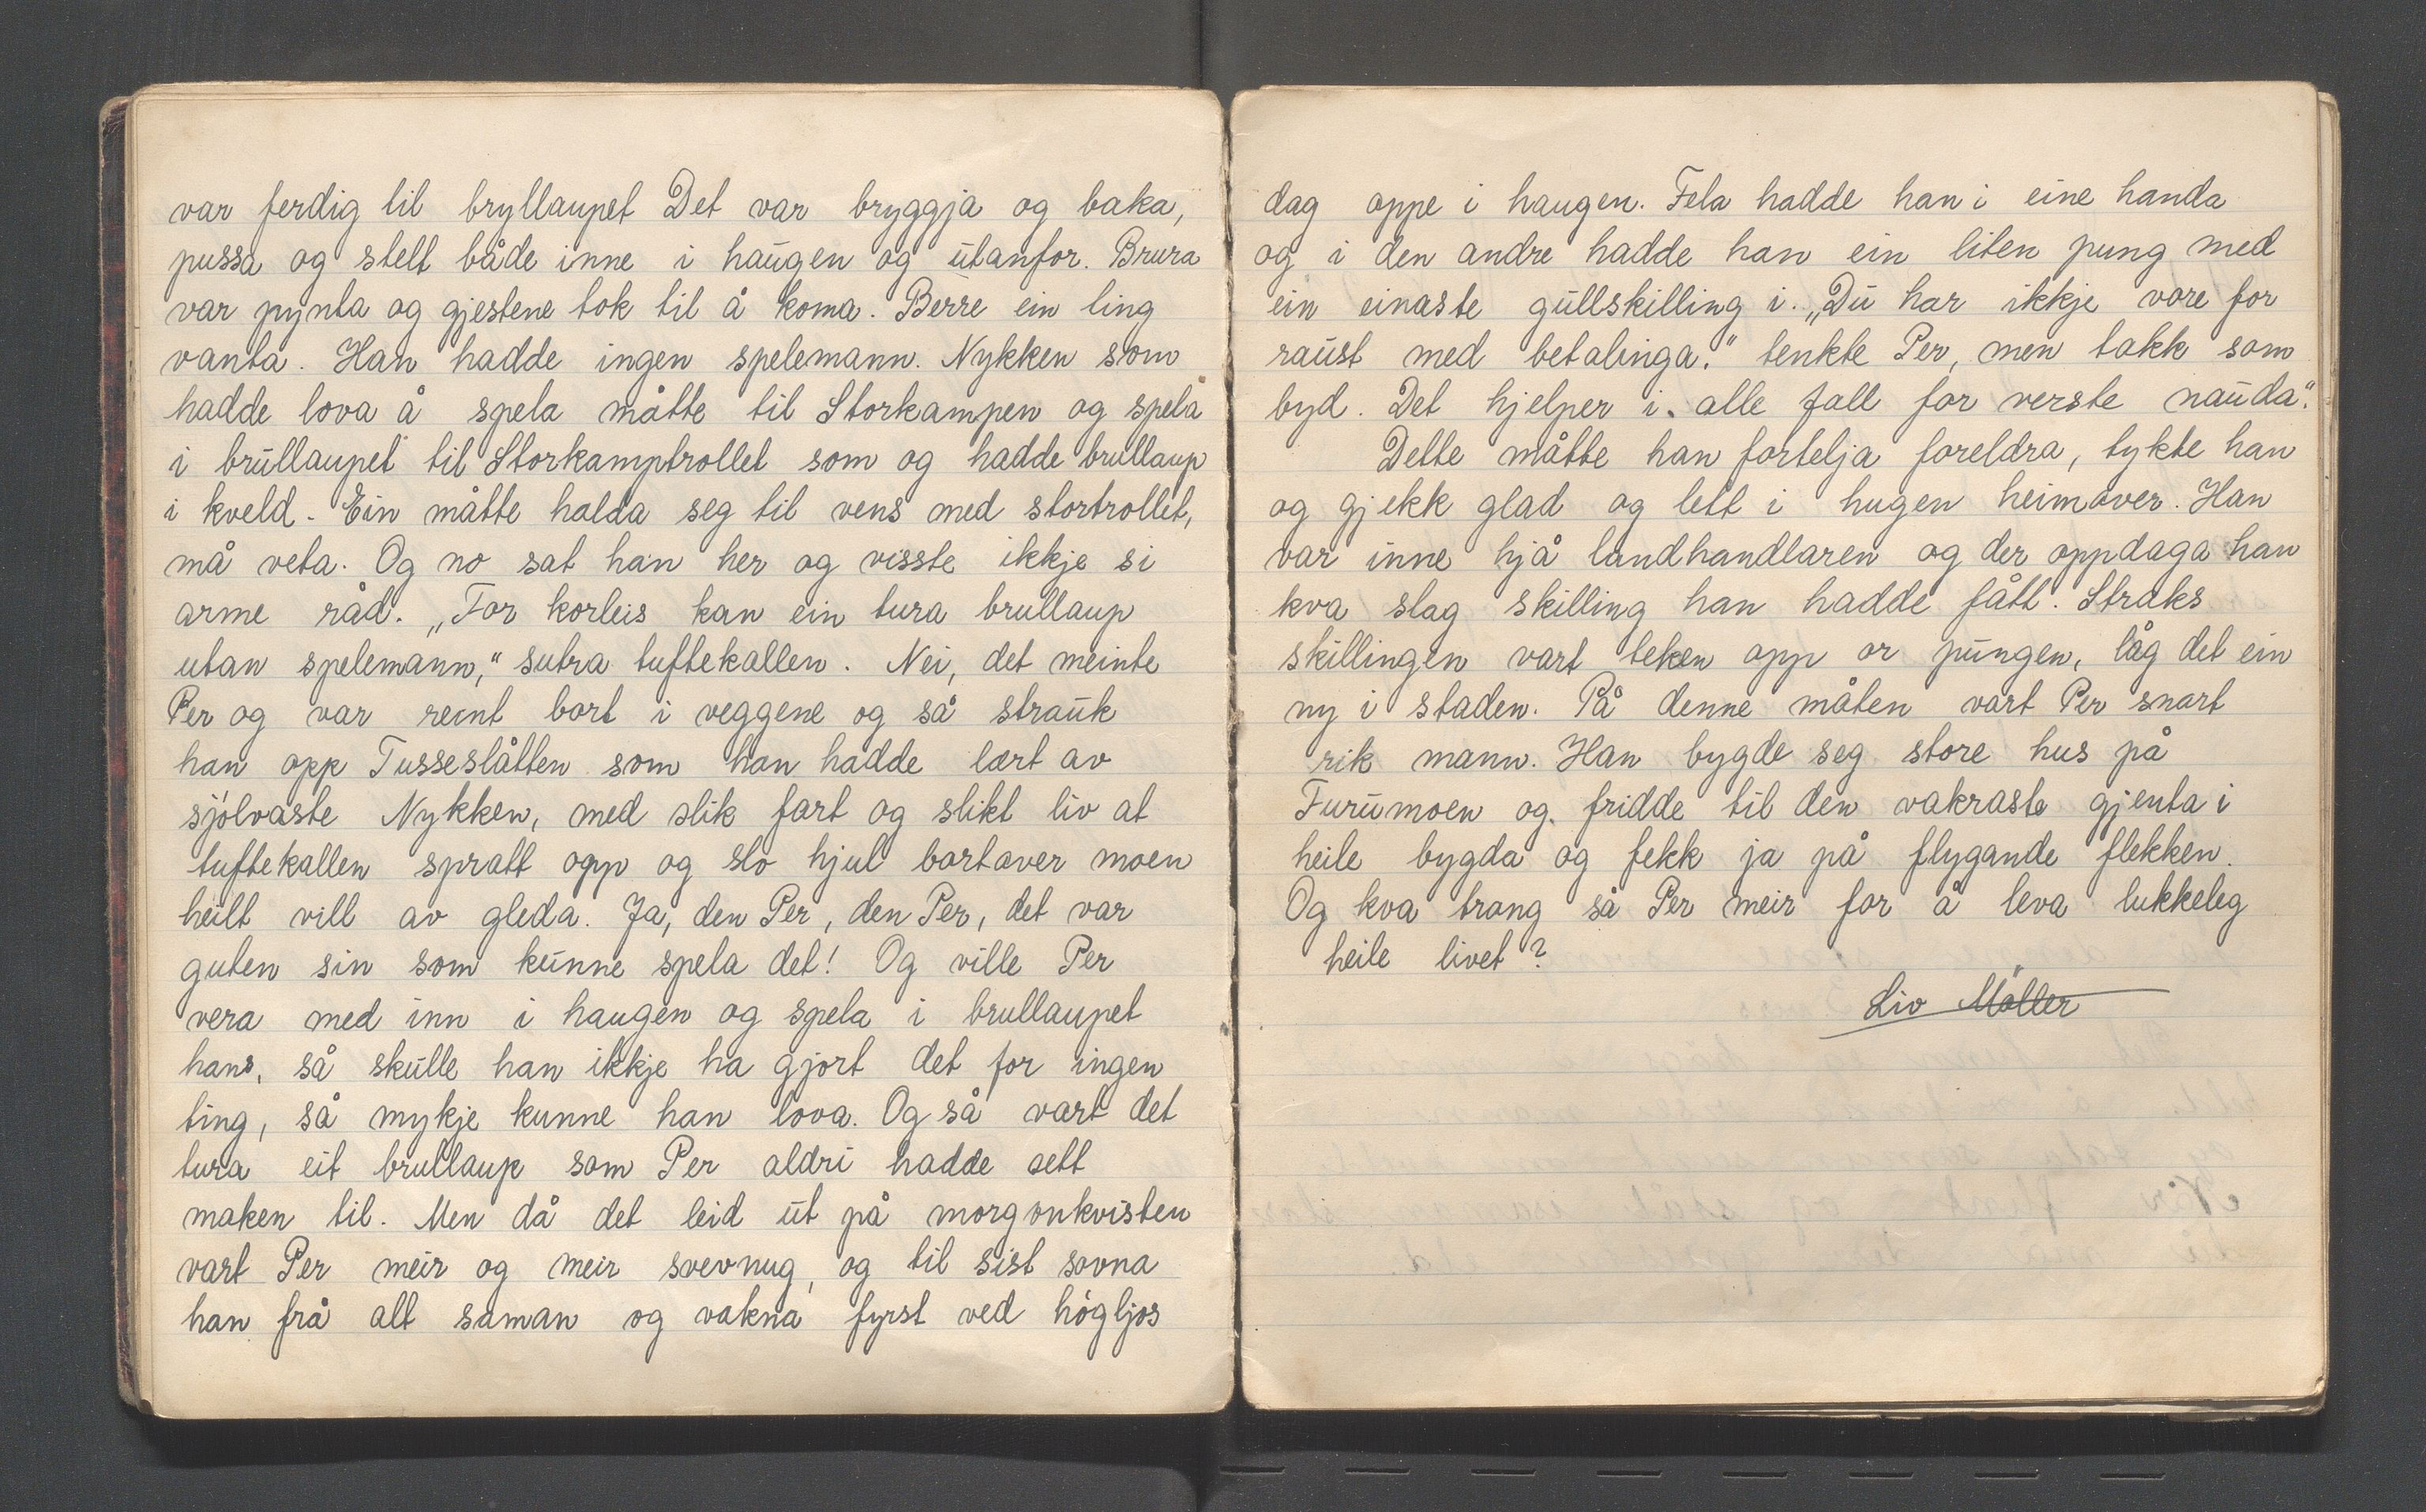 var ferdig til bryllaupet Det var bryggja og baka,
pussa og stelt både inne i haugen og utanfor. Brura
var pynta og gjestene tok til å koma. Berre ein ting
vanta. Han hadde ingen spelemann. Nykken som
hadde lova å spela måtte til Storkampen og spela
i brullaupet til Storkamptrollet som og hadde brullaup
i kveld. Ein måtte halda seg til vens med stortrollet,
må veta. Og no sat han her og visste ikkje si
arme råd. „For korleis kan ein tura brullaup
utan spelemann,“ sutra tuftekallen. Nei, det meinte
Per og var reint bort i veggene og så strauk
han opp Tusseslåtten som han hadde lært av
sjølvaste Nykken, med slik fart og slikt liv at
tuftekallen spratt opp og slo hjul bortover moen
heilt vill av gleda. Ja, den Per, den Per, det var
guten sin som kunne spela det! Og ville Per
vera med inn i haugen og spela i brullaupet
hans, så skulle han ikkje ha gjort det for ingen
ting, så mykje kunne han lova. Og så vart det
tura eit brullaup som Per aldri hadde sett
maken til. Men då det leid ut på morgonkvisten
vart Per meir og meir svevnug, og til sist sovna
han frå alt saman og vakna fyrst ved högljos
dag oppe i haugen. Fela hadde han i eine handa
og i den andre hadde han ein liten pung med
ein einaste gullskilling i. „Du har ikkje vore for
raust med betalinga.“ tenkte Per, men takk som
byd. Det hjelper i alle fall for verste nauda.“
Dette måtte han fortelja foreldra, tykte han
og gjekk glad og lett i hugen heimover. Han
var inne hjå landhandlaren og der oppdaga han
kva slag skilling han hadde fått. Straks
skillingen vart teken opp or pungen, låg det ein
ny i staden. På denne måten vart Per snart
rik mann. Han bygde seg store hus på
Furumoen og fridde til den vakraste gjenta i
heile bygda og fekk ja på flygande flekken.
Og kva trong så Per meir for å leva lukkeleg
heile livet?
Liv Möller